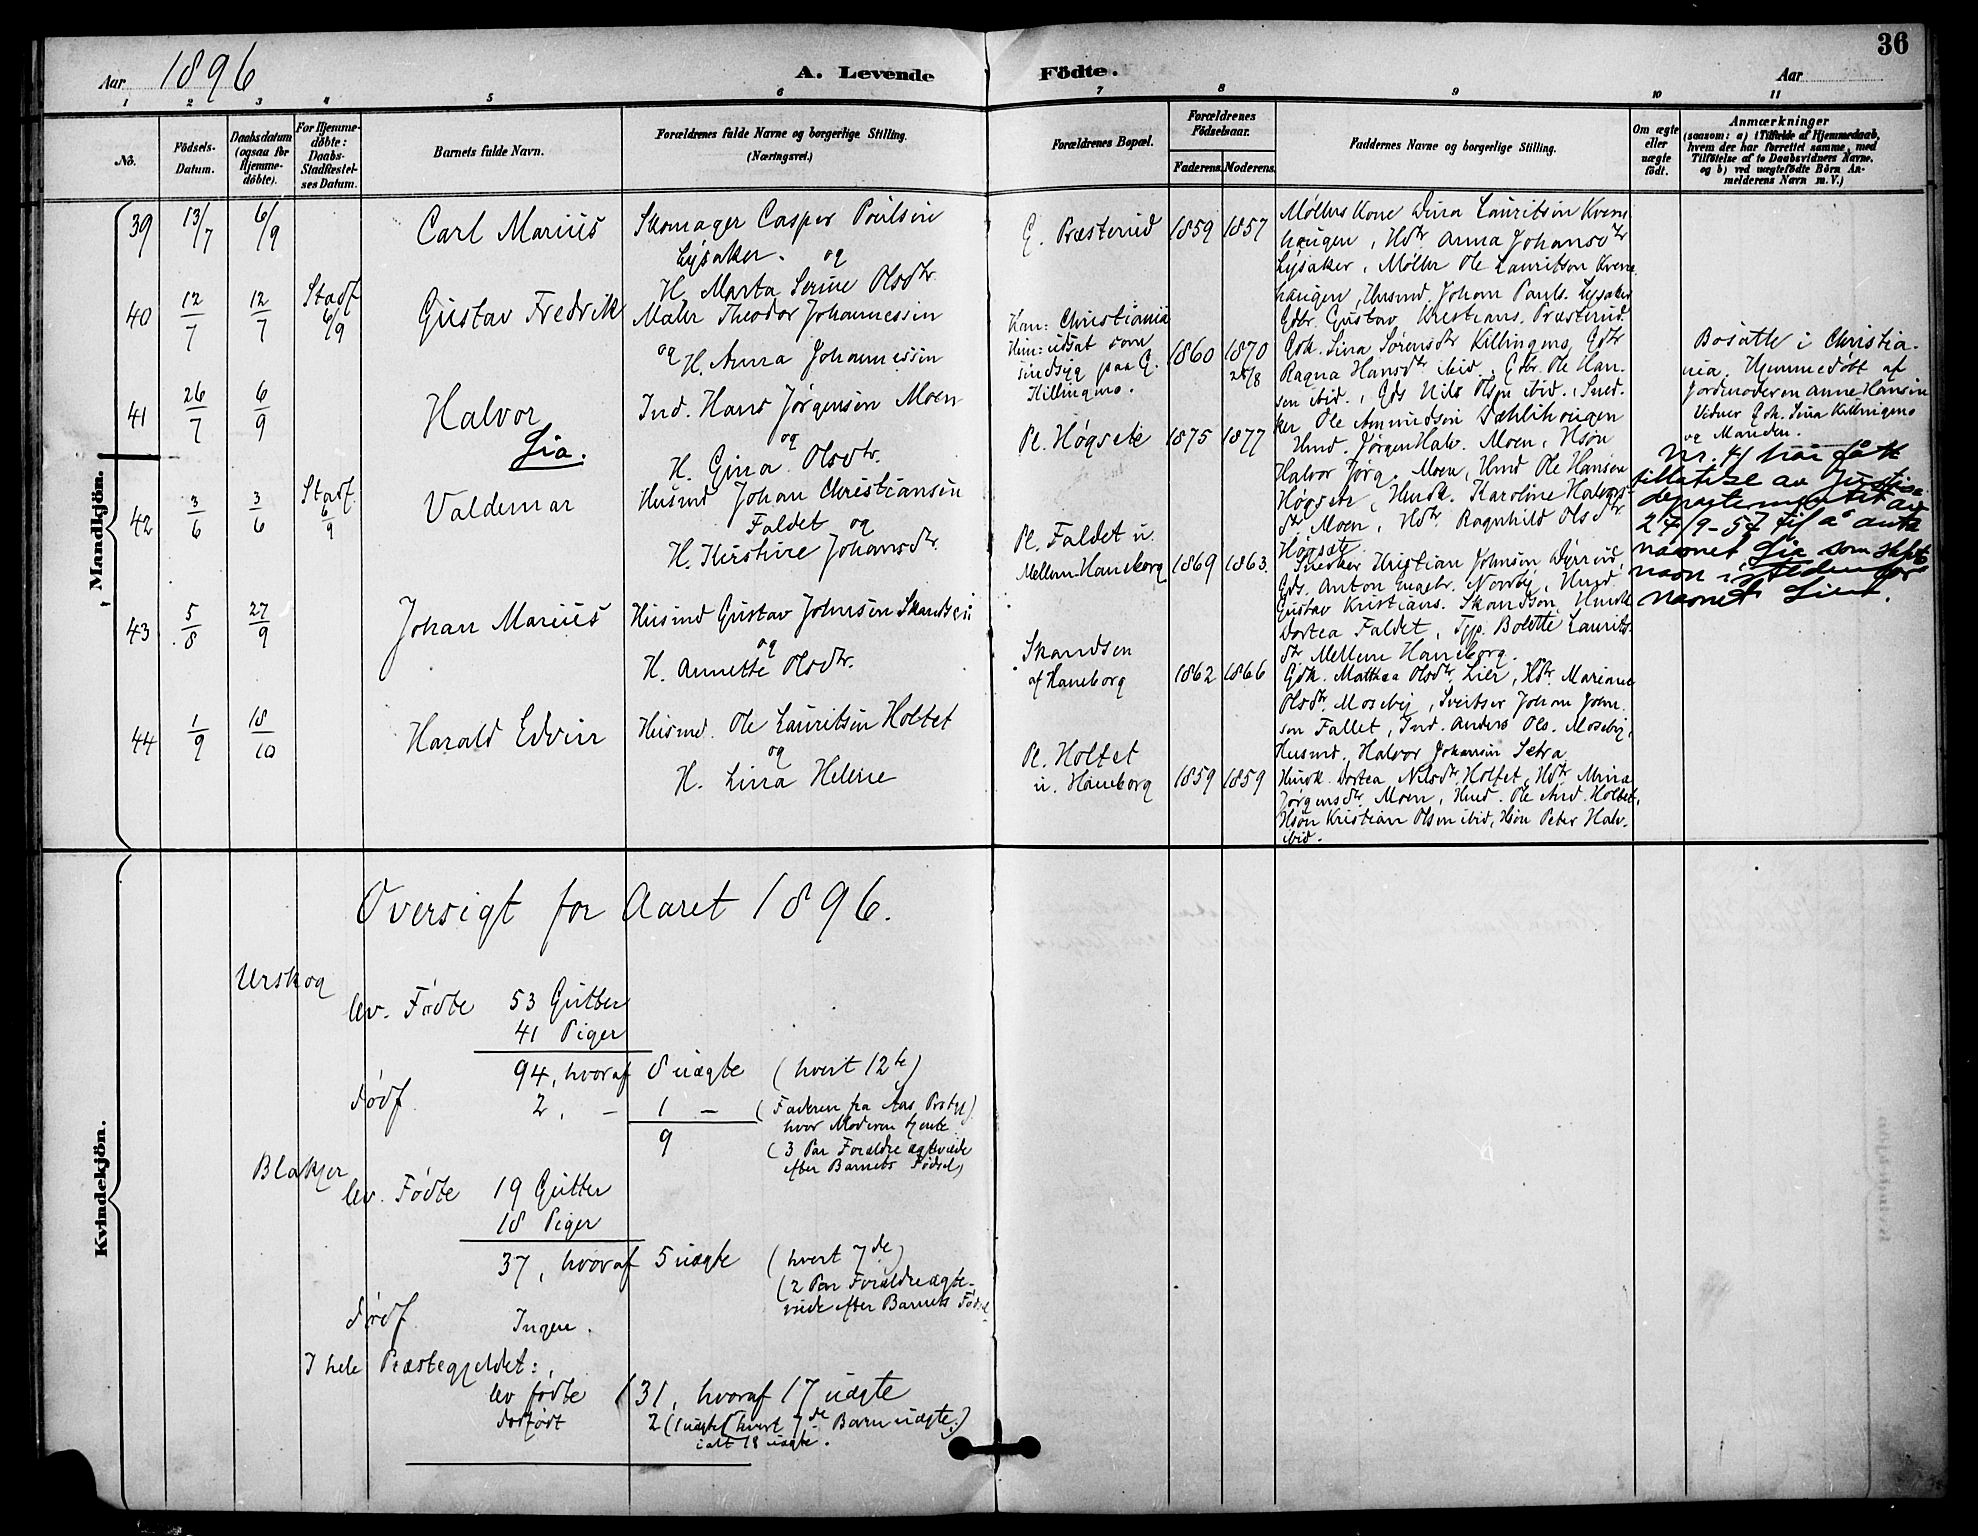 36
Aar 1896
A. Levende Födte.
Aar
1 2 3 4 5 6 7 8 9 10 11
No.
Födsels-Datum.
Daabsdatum (ogsaa for Hjemme-döbte).
For Hjemme-döbte: Daabs-Stadfæstel-ses Datum.
Barnets fulde Navn.
Forældrenes fulde Navne og borgerlige Stilling.
(Næringsvei.)
Forældrenes Bopæl.
Forældrenes Födselsaar.
Faderens. Moderens.
Faddernes Navne og borgerlige Stilling.
Om ægte eller uægte födt.
Anmærkninger
(saasom: a) i Tilfælde af Hjemmedaab,
hvem der har forrettet samme, med
Tilföielse af to Daabsvidners Navne,
og b) ved uægtefödte Börn An-
melderens Navn m. V.)
Mandkjön.
39 13/7 6/9 Carl Marius
Skomager Casper Poulsen
Lysaker. og
H. Marta Serine Olsdtr.
G. Præsterud 1859 1857
Møllers Kone Dina Lauritsen Kvern
haugen, Hdtr Anna Johansdtr
Lysaker, Møller Ole Lauritsen Kvern
haugen, Husmd. Johan Pauls. Lysaker
Gdbr. Gustav Kristians. Præsterud.
40 12/7 12/7 Stadf. 6/9 Gustav Fredrik
Maler Theodor Johannessen
og H. Anna Johannessen
Han: Christiania
Hun: udsat som
sindsyg paa G.
Killingmo.
1860 1870
Gdk. Lina Sørensdtr Killingmo, Gdtr
Ragna Hansdtr ibid., Gdbr. Ole Han-
sen ibid., Gds Nils Olsen ibid., Sned-
ker Ole Amundsen Dæhlihaugen
Bosatte i Christia-
nia. Hjemmedøbt af
Jordmoderen Anne Hansen
Vidner Gdk. Lina Killingmo
og Manden.
41 26/7 6/9 Halvor
Lia.
Ind. Hans Jørgensen Moen
og
H. Gina Olsdtr.
Pl. Høgsete 1875 1877
Husmd. Jørgen Halv. Moen, Hsøn
Halvor Jørg. Moen, Husmd Ole Hansen
Høgsete, Husmk. Karoline Halvors-
dtr Moen, Hdtr. Ragnhild Olsdtr
Høgsete.
Nr. 41 har fått
tillatelse av Justis-
departementet av
24/9-57 til å anta
navnet Lia som slekts-
navn istedenfor
navnet Lien.
42 3/6 3/6 Stadf. 6/9 Valdemar
Husmd Johan Christiansen
Faldet og
H. Kirstine Johansdtr.
Pl. Faldet u.
Mellem-Haneborg 1869 1863.
Snedker Kristian Johnsen Dyrrud,
Gds. Anton Engebr. Nordby, Husmd.
Gustav Kristians. Skandsen, Husmk
Dortea Faldet, Tjp. Bolette Laurits-
dtr Mellem Haneborg.
43 5/8 27/9 Johan Marius
Husmd Gustav Johnsen Skandsen
og
H. Annette Olsdtr.
Skandsen
af Haneborg 1862 1866
Gdk. Mathea Olsdtr. Lier, Hdtr. Mariane
Olsdtr. Moseby, Sveitser Johan John-
sen Fallet, Ind. Anders Ols. Moseby,
Husmd. Halvor Johansen Sætra
44 1/9 18/10 Harald Edvin
Husmd. Ole Lauritsen Holtet
og
H. Lina Helene
Pl. Holtet
u. Haneborg 1859 1859
Husmk. Dortea Nilsdtr. Holtet, Hdtr Mina
Jørgensdtr. Moen, Husmd. Ole And. Holtet,
Hsøn Kristian Olsen ibid, Hsøn Peter Halv.
ibid.
Kvindekjön.
Oversigt for Aaret 1896.
Urskog
lev. Fødte 53 Gutter
41 Piger
94, hvoraf 8 uægte (hvert 12te)
dødf. 2, – 1 – (Faderen fra Aas Prstgj.
hvor Moderen tjente
9 (3 Par Forældre ægteviede
efter Barnets Fødsel)
Blakjer
lev. Fødte 19 Gutter
18 Piger
37, hvoraf 5 uægte (hvert 7de)
(2 Par Forældre ægte-
viede efter Barnets Fødsel
dødf. Ingen.
I hele Præstegjeldet:
lev fødte 131, hvoraf 17 uægte
dødfødt 2 (1 uægte) (hvert 7de Barn uægte.)
ialt 18 uægte.